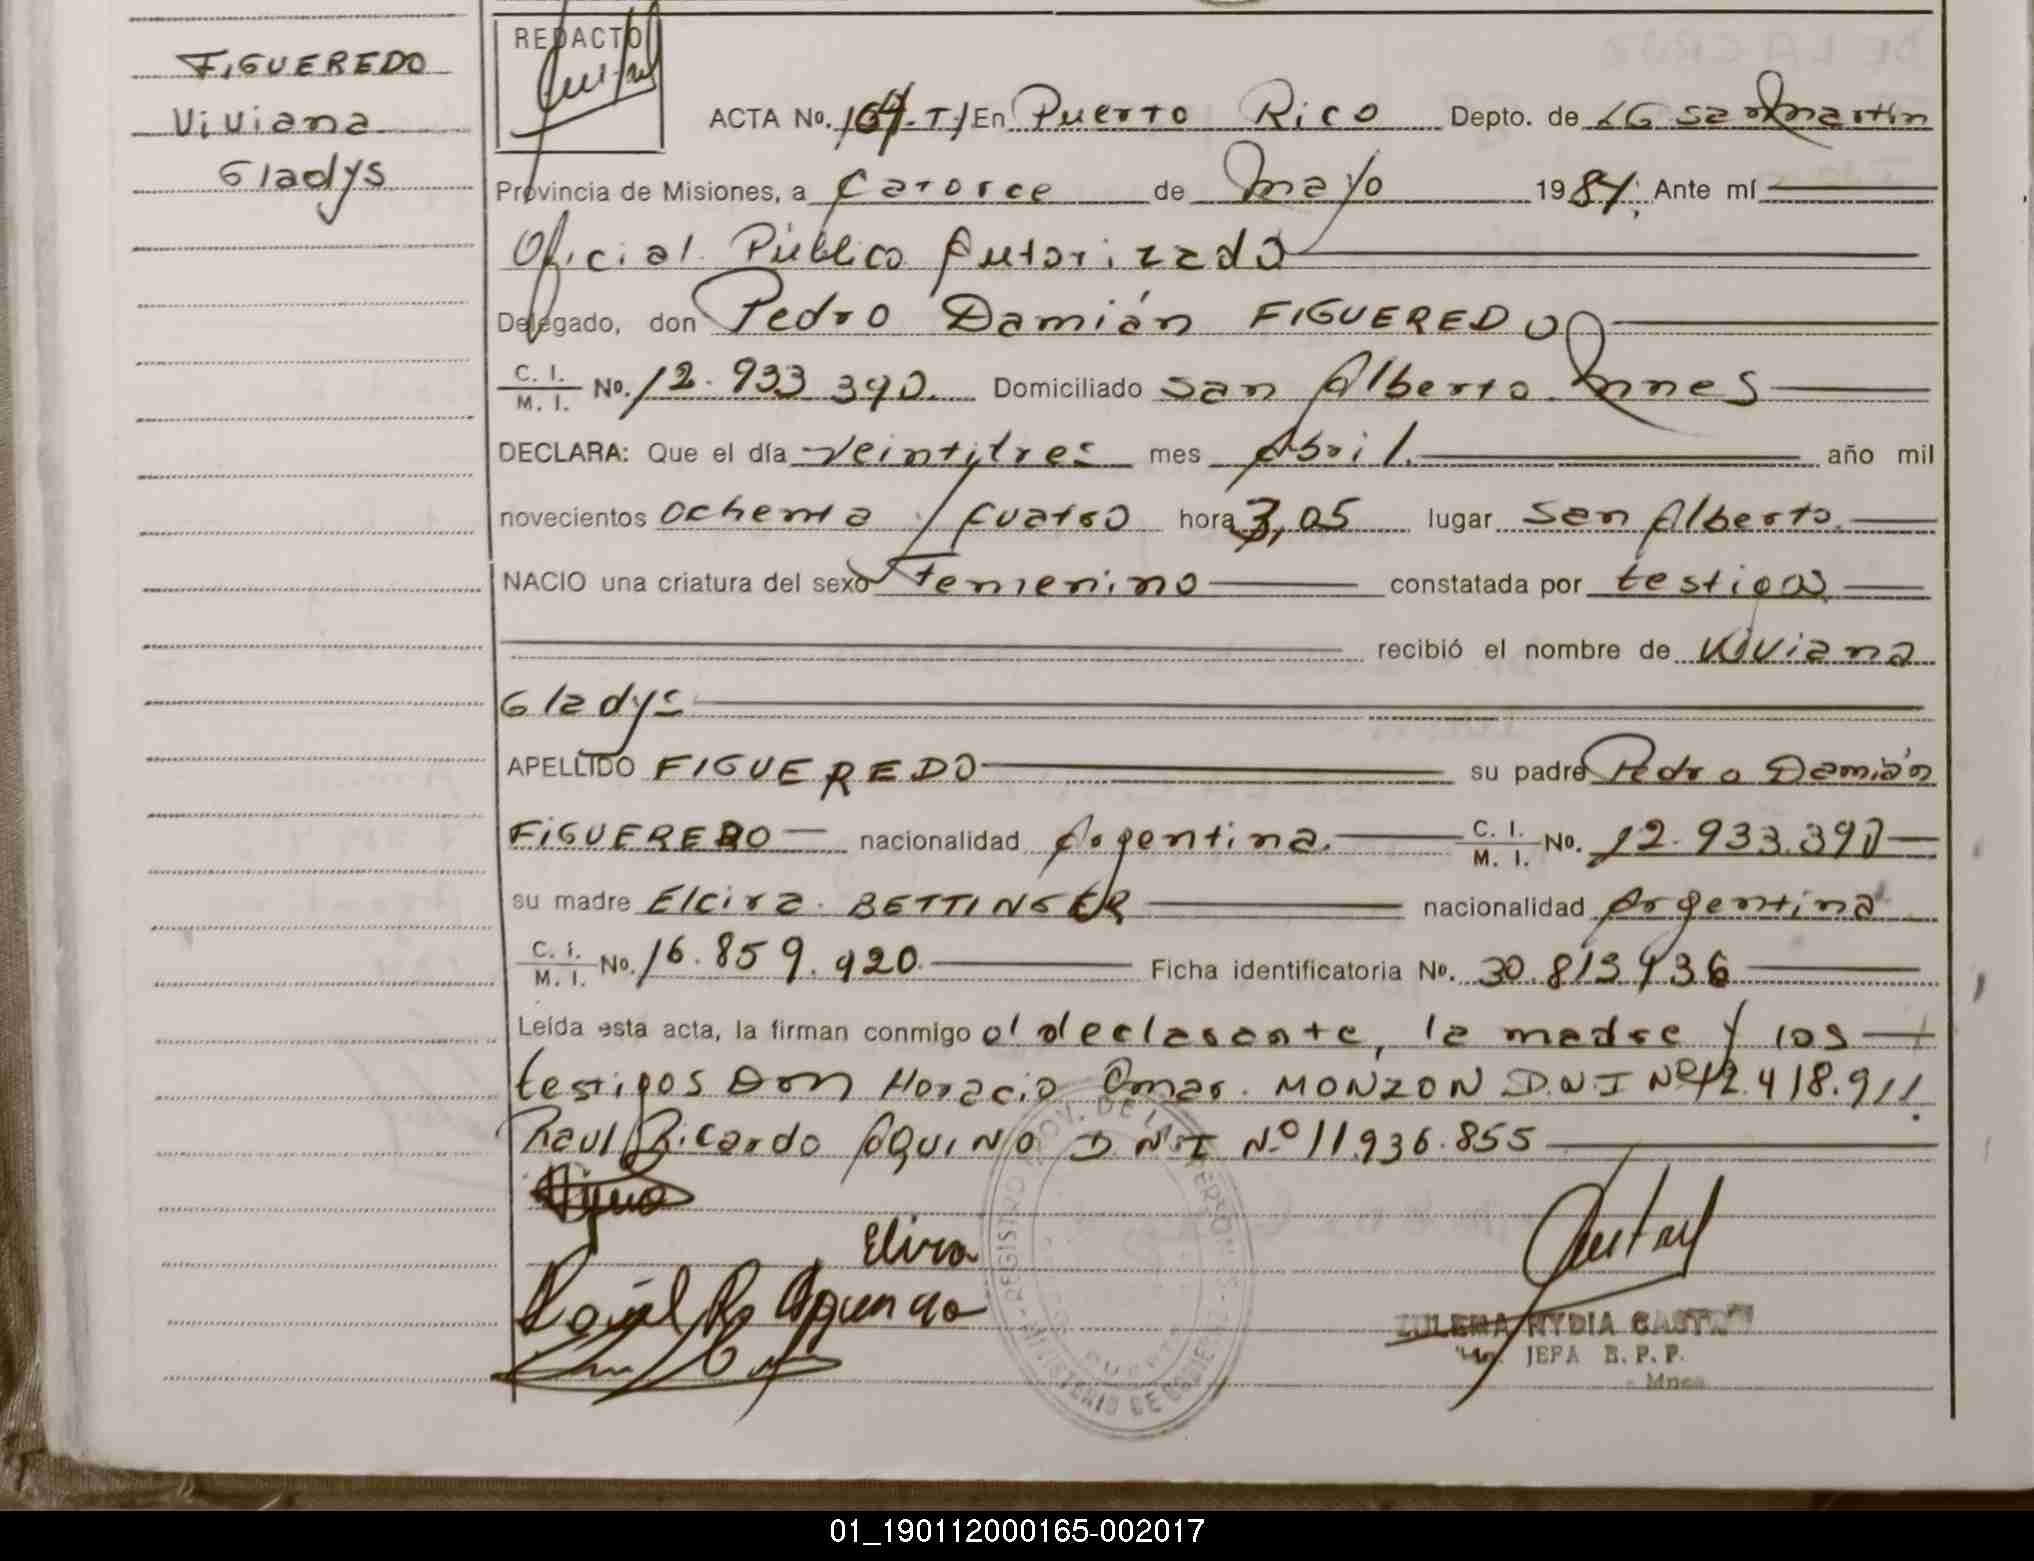 FIGUEREDO
Viviana
Gladys
REDACTO
ACTA No. 164.T.I En Puerto Rico Depto. de LG San Martín
Provincia de Misiones, a Catorce de Mayo 1984; Ante mí
Oficial Público Autorizado
Delegado, don Pedro Damián FIGUEREDO
C. I. / M. I. No. 12.933 390. Domiciliado San Alberto Mnes
DECLARA: Que el día veintitres mes Abril. año mil
novecientos ochenta y cuatro hora 3,05 lugar San Alberto.
NACIO una criatura del sexo Femenino constatada por testigos
recibió el nombre de Viviana
Gladys
APELLIDO FIGUEREDO su padre Pedro Damián
FIGUEREDO nacionalidad Argentina. C. I. / M. I. No. 12.933.390
su madre Elcira BETTINGER nacionalidad Argentina
C. I. / M. I. No. 16.859.920 Ficha identificatoria No. 30.813936
Leída esta acta, la firman conmigo el declarante, la madre y los
testigos Don Horacio Omar MONZON D.N.I Nº 12.418.911
Raul Ricardo AQUINO D.N.I Nº 11.936.855
Elira
REGISTRO PROV. DE LAS PERSONAS - MINISTERIO DE GOBIERNO
ZULEMA NYDIA CASTRO
JEFA
Mnes
01_190112000165-002017